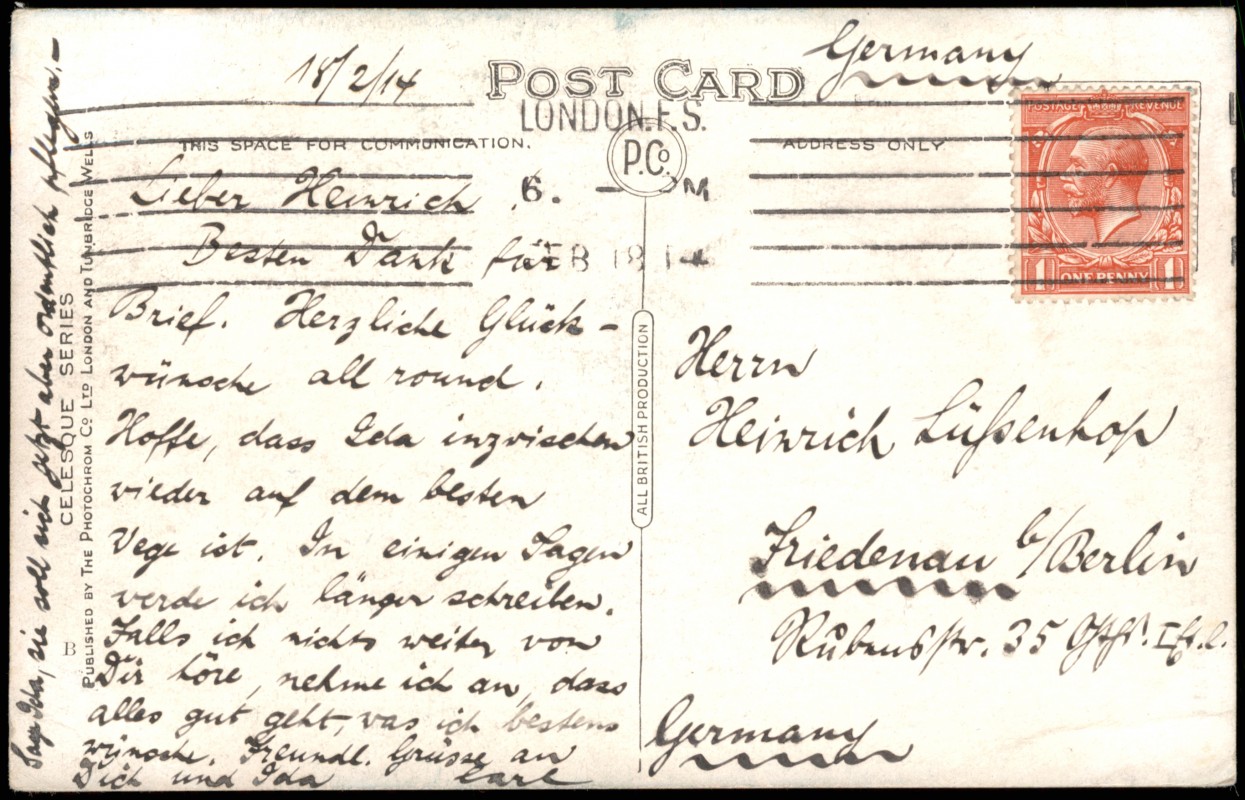 Germany
18/2/14
POST CARD
LONDON. F.S.
P.Co.
THIS SPACE FOR COMMUNICATION.
ADDRESS ONLY
POSTAGE REVENUE
1 ONE PENNY 1
6. – M
FEB 18 14
Lieber Heinrich
Besten Dank für
Brief. Herzliche Glück-
wünsche all round.
Hoffe, dass Ida inzwischen
wieder auf dem besten
Wege ist. In einigen Tagen
werde ich länger schreiben.
Falls ich nichts weiter von
Dir höre, nehme ich an, dass
alles gut geht, was ich bestens
wünsche. Freundl. Grüsse an
Dich und Ida Carl
Sage Ida, sie soll sich jetzt aber ordentlich pflegen.—
CELESQUE SERIES
PUBLISHED BY THE PHOTOCHROM CO LTD LONDON AND TUNBRIDGE WELLS
B
ALL BRITISH PRODUCTION
Herrn
Heinrich Lüßenhop
Friedenau b/Berlin
Rubensstr. 35
Germany